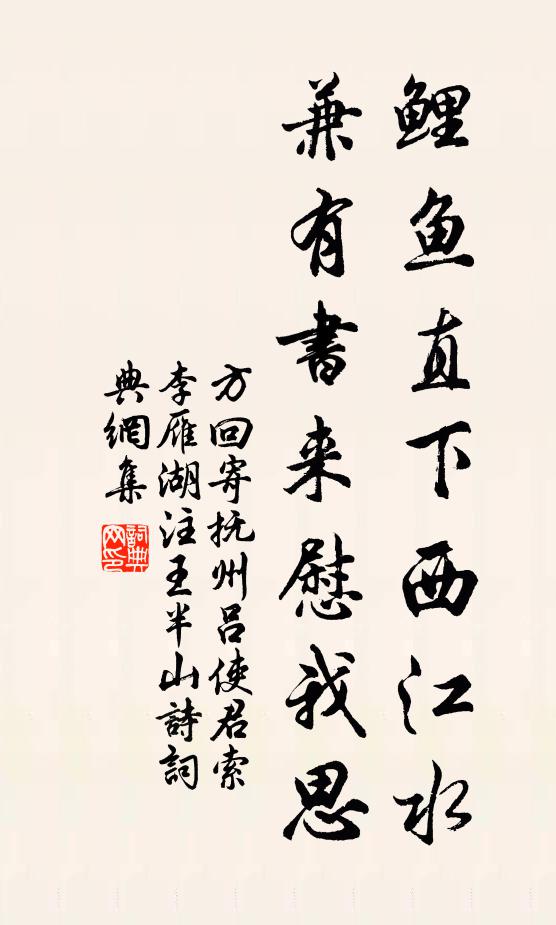 鲤鱼直下西江水
兼有書来慰我思
方回寄抚州吕使君索
李雁湖注王半山詩詞
典網集
詞典
网印